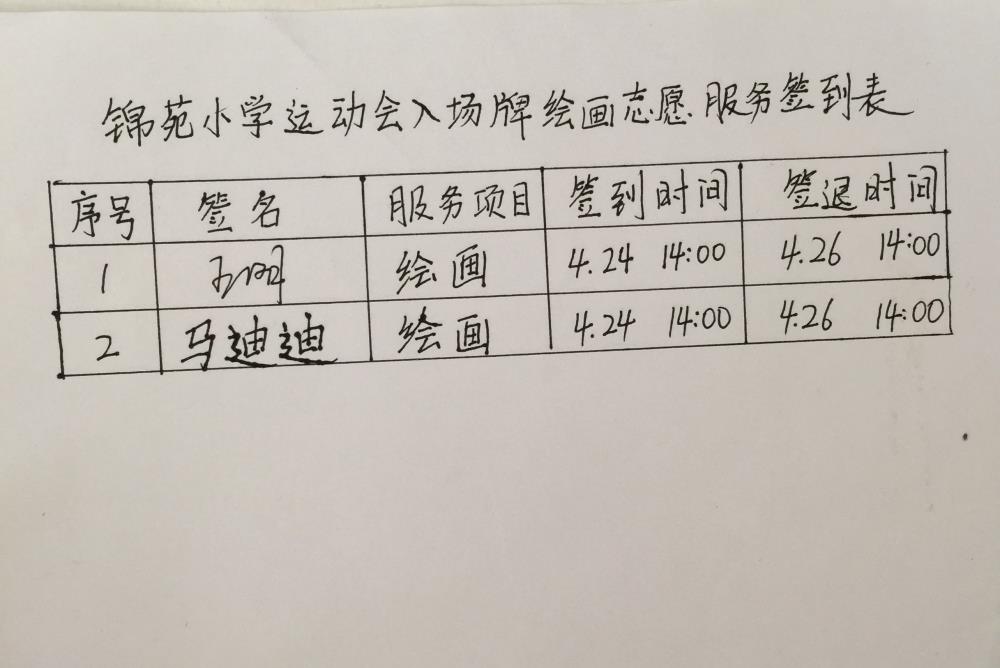 锦苑小学运动会入场牌绘画志愿服务签到表
序号 签名 服务项目 签到时间 签退时间
1 绘画 4.24 14:00 4.26 14:00
2 马迪迪 绘画 4.24 14:00 4.26 14:00